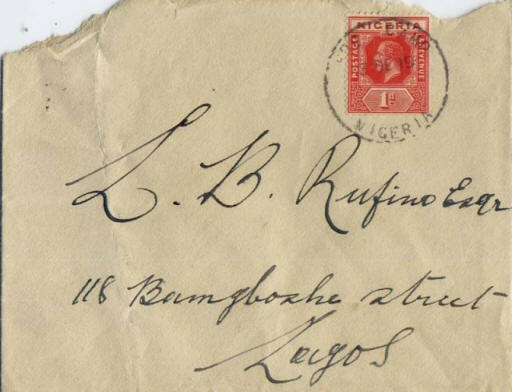 NIGERIA
POSTAGE
REVENUE
1d
NIGERIA
L. B. Rufino Esqr
118 Bamgboshe street
Lagos